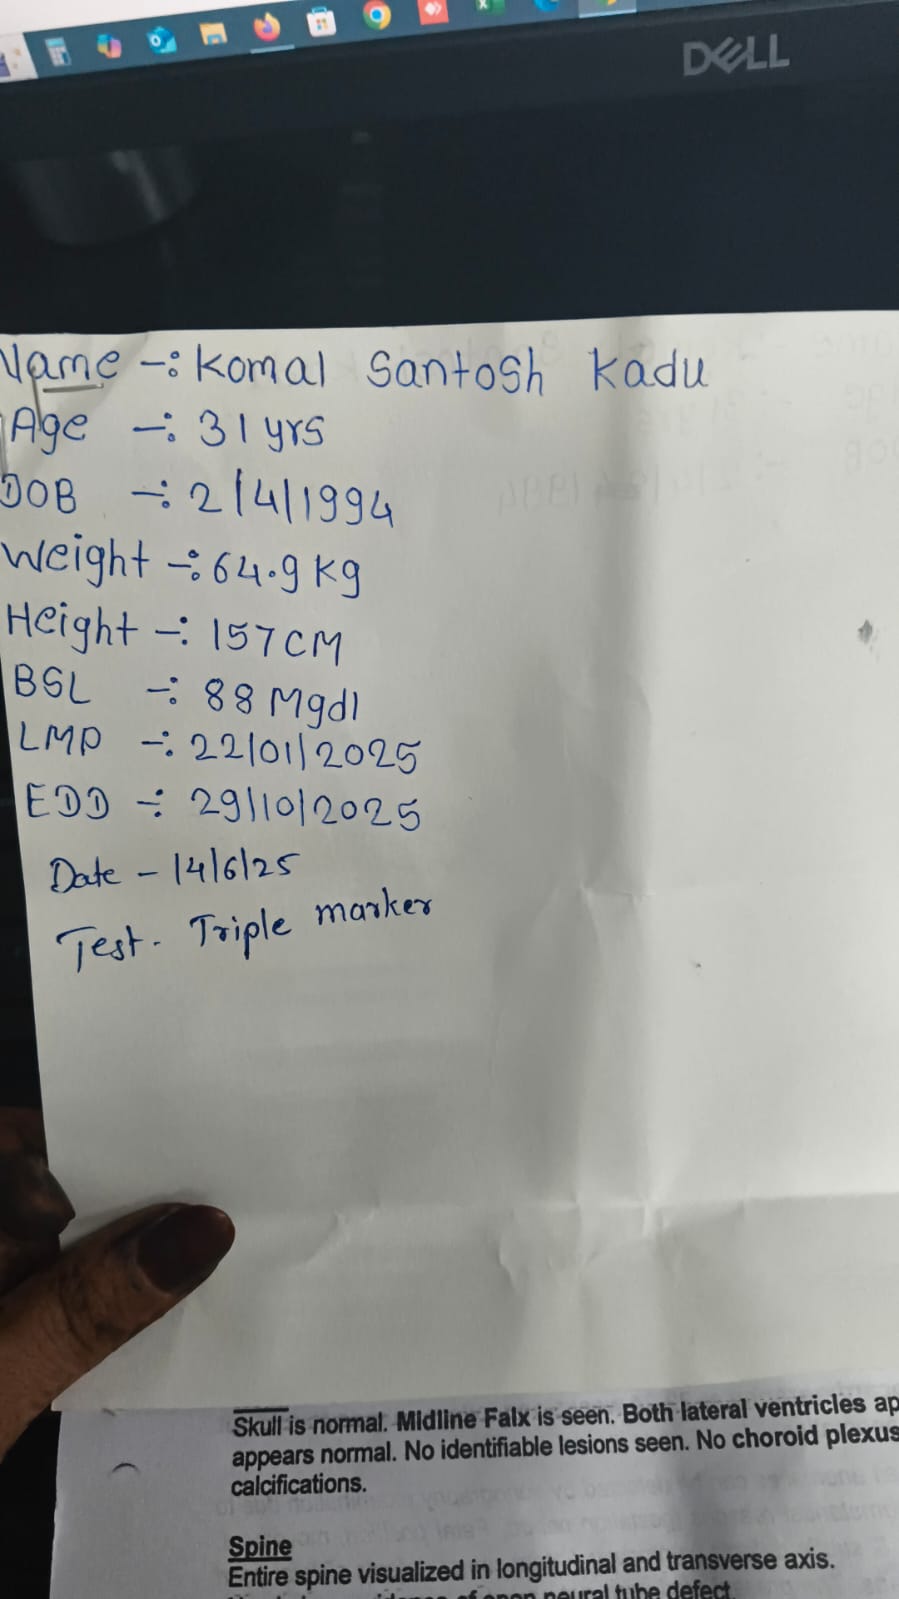 DELL
Name -: Komal Santosh Kadu
Age -: 31 yrs
DOB -: 2/4/1994
Weight -: 64.9 kg
Height -: 157 CM
BSL -: 88 Mgdl
LMP -: 22/01/2025
EDD -: 29/10/2025
Date - 14/6/25
Test - Triple marker
Skull is normal. Midline Falx is seen. Both lateral ventricles ap
appears normal. No identifiable lesions seen. No choroid plexus
calcifications.
Spine
Entire spine visualized in longitudinal and transverse axis.
neural tube defect